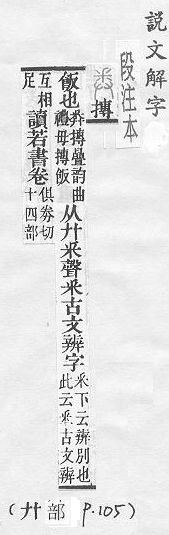 說文解字
段注本
𢍏 摶
飯也 𢍏摶疊韵曲禮毋摶飯 从廾釆聲釆古文辨字 釆下云辨別也此云釆古文辨
互相足 讀若書卷 俱券切十四部
(廾部 P.105)